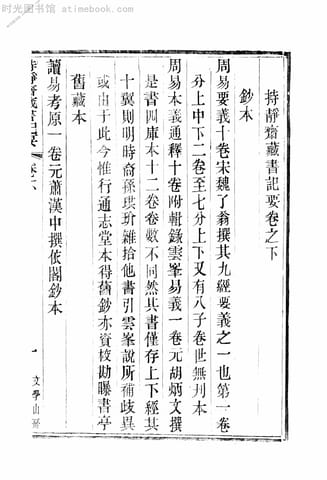 时光图书馆 atimebook.com
持靜齋藏書記要卷之下
鈔本
周易要義十卷宋魏了翁撰其九經要義之一也第一卷
分上中下二卷至七分上下又有八子卷世無刋本
周易本義通釋十卷附輯錄雲峯易義一卷元胡炳文撰
是書四庫本十二卷卷數不同然其書僅存上下經其
十翼則明時裔孫珙玠雜拾他書引雲峯說所補歧異
或由于此今惟行通志堂本得舊鈔亦資校勘曝書亭
舊藏本
讀易考原一卷元蕭漢中撰依閣鈔本
持靜齋藏書記要
卷下
一
文學山房